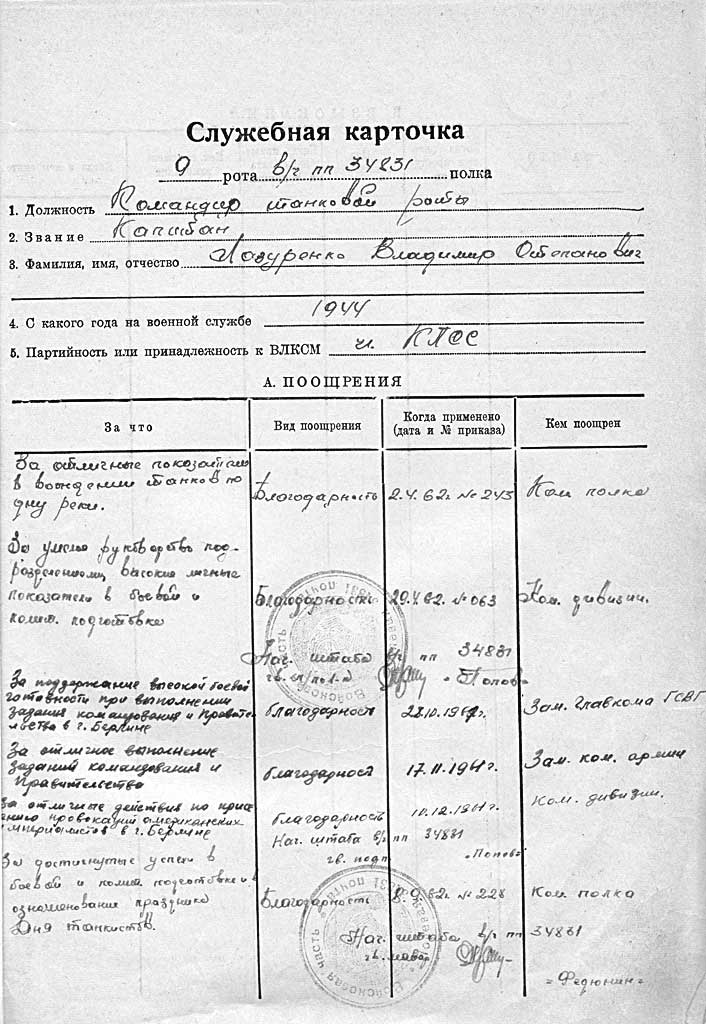 Служебная карточка
9 рота в/ч пп 34831 полка
1. Должность Командир танковой роты
2. Звание Капитан
3. Фамилия, имя, отчество Лазуренко Владимир Степанович
4. С какого года на военной службе 1944
5. Партийность или принадлежность к ВЛКСМ чл. КПСС
А. ПООЩРЕНИЯ
За что Вид поощрения Когда применено (дата и № приказа) Кем поощрен
За отличные показатели
в вождении танков по
дну реки. Благодарность 2.4.62г № 243 Ком полка
За умелое руководство под-
разделением, высокие личные
показатели в боевой и
полит. подготовке Благодарность 29.4.62. № 063 Ком. дивизии.
Нач. штаба в/ч пп 34831
"Попов"
За поддержание высокой боевой
готовности при выполнении
задания командования и Правите-
льства в г. Берлине благодарност 28.10.1961г. Зам. Главкома ГСВГ
За отличное выполнение
заданий командования и
Правительства благодарност 17.11.1961г. Зам. ком. армии
За отличные действия по пресе-
чению провокаций американских
империалистов в г. Берлине благодарность 10.12.1961г. Ком. дивизии.
Нач. штаба в/ч пп 34831
гв. подп "Попов"
За достигнутые успехи в
боевой и полит. подготовке и в
ознаменование праздника
Дня танкистов. Благодарность 8.9.62г № 228 Ком. полка
Нач. штаба в/ч пп 34831
гв. майор
"Федюнин"